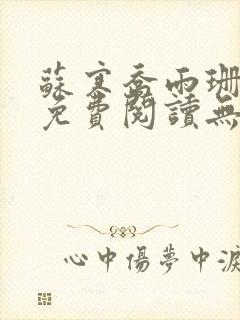 蘇寒喬雨珊
免費閱讀無
心中傷夢中淚